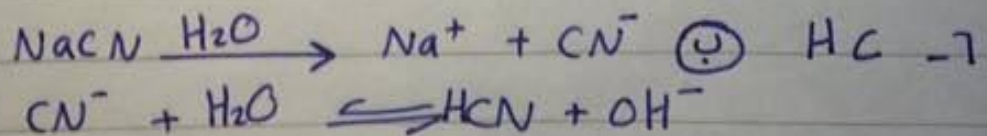 NaCN —H₂O→ Na⁺ + CN⁻ ب HC -7
CN⁻ + H₂O ⇌ HCN + OH⁻